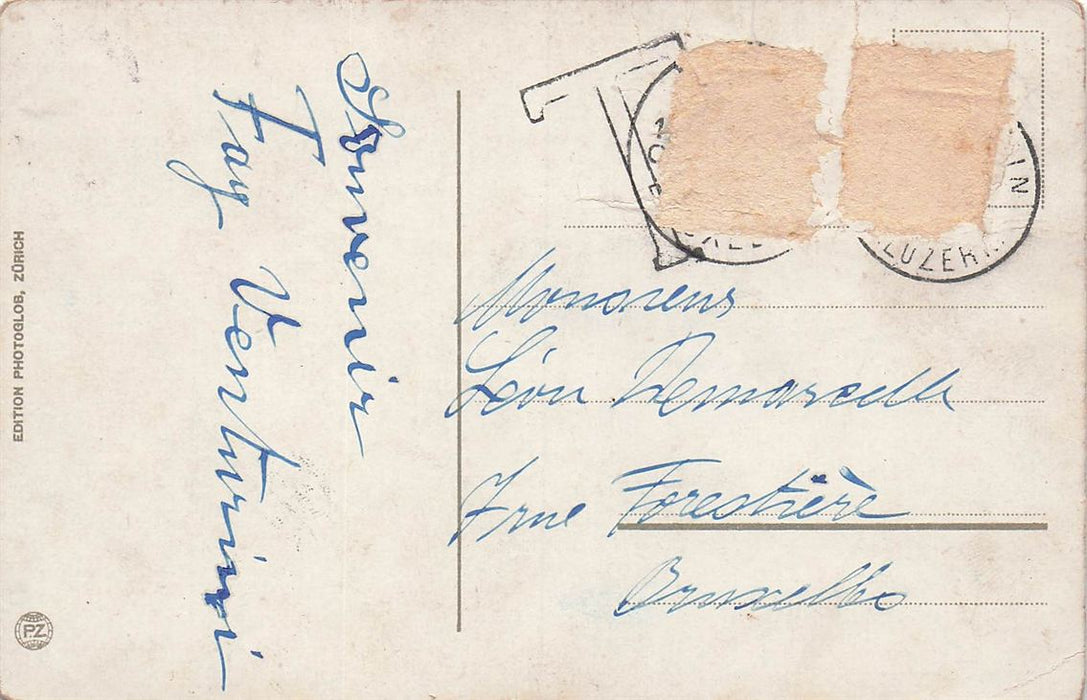 Souvenir
Fay Venturini
Monsieur
Léon Demarcelle
Avenue Forestière
Bruxelles
EDITION PHOTOGLOB, ZÜRICH
PZ
T
LUZERN